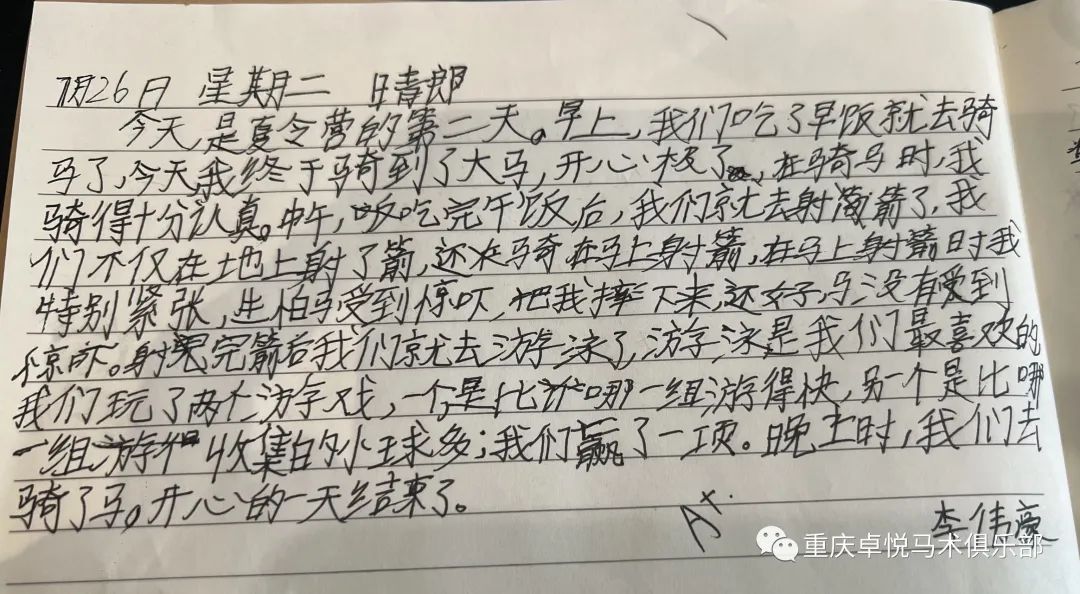 7月26日 星期二 晴郎
今天,是夏令营的第二天。早上,我们吃了早饭就去骑
马了,今天我终于骑到了大马,开心极了,在骑马时,我
骑得十分认真。中午,饭吃完午饭后,我们就去射箭了,我
们不仅在地上射了箭,还在马骑在马上射箭,在马上射箭时我
特别紧张,生怕马受到惊吓,把我摔下来,还好,马没有受到
惊吓。射完箭后我们就去游泳了,游泳是我们最喜欢的
我们玩了两个游戏,一个是比哪一组游得快,另一个是比哪
一组收集的小球多;我们赢了一项。晚上时,我们去
骑了马。开心的一天结束了。
A+.
李伟豪
重庆卓悦马术俱乐部